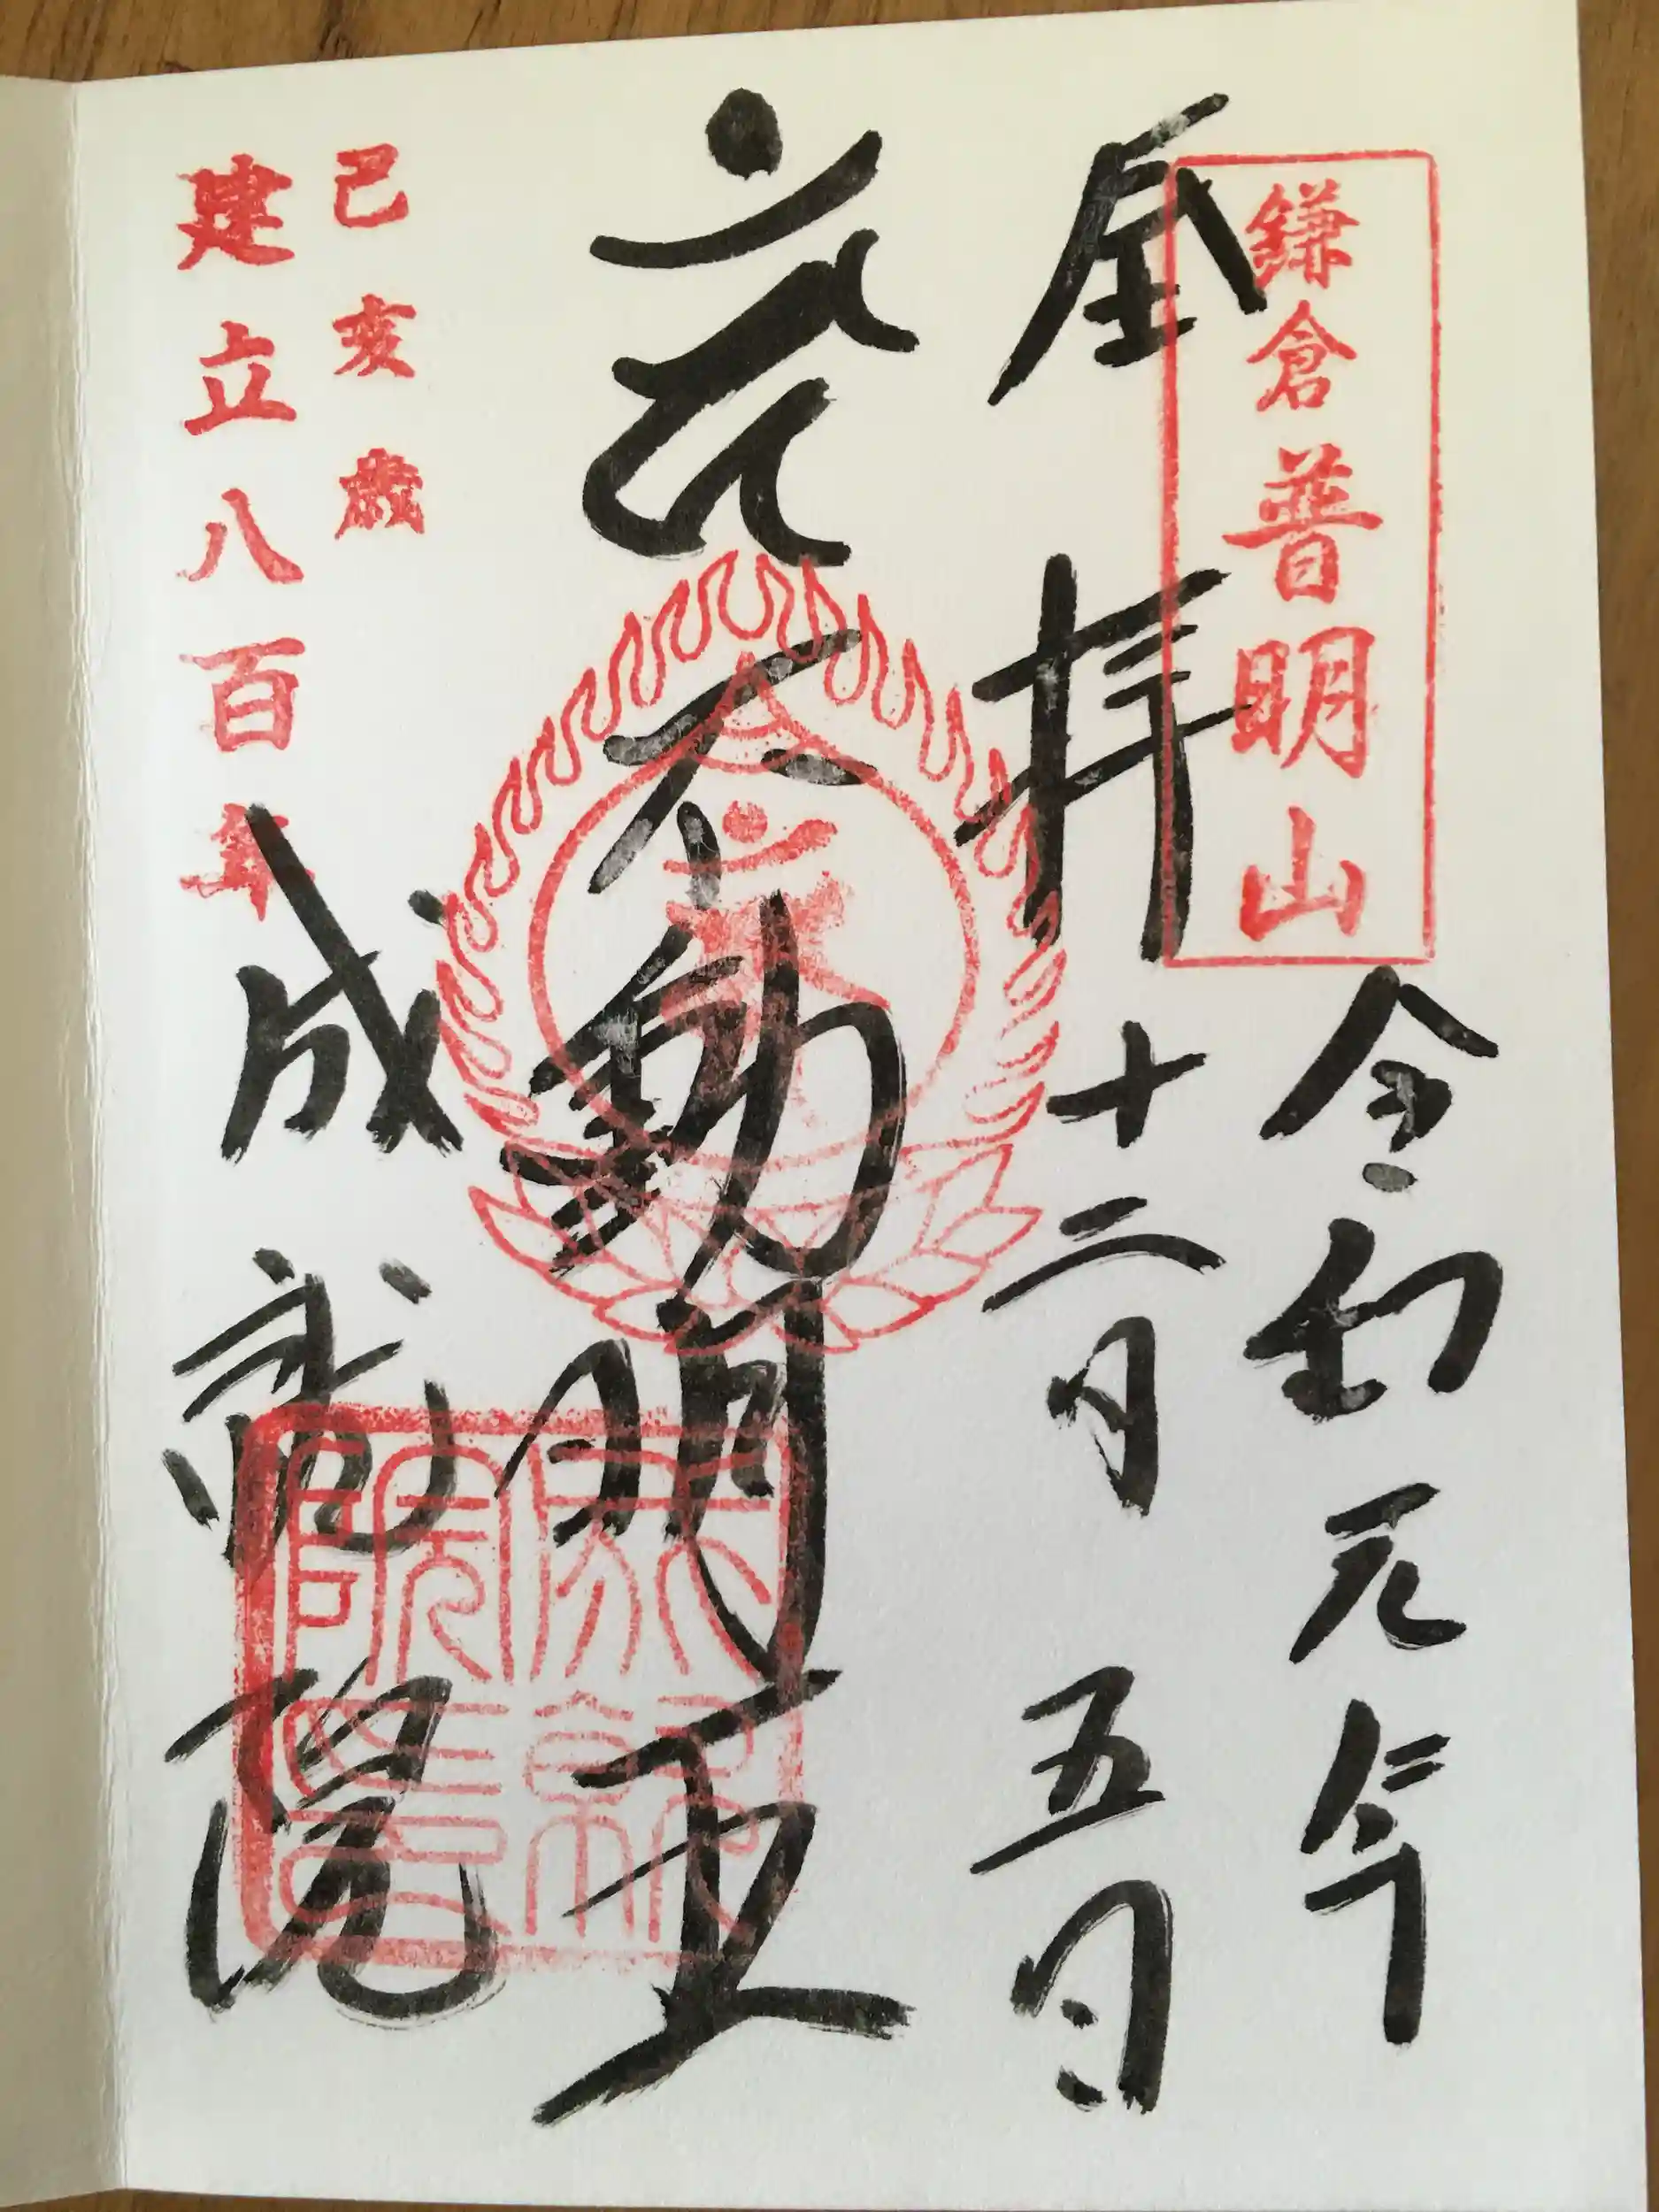 鎌倉普明山
令和元年
拝
十二月五日
不動明王
己亥歳
建立八百年
成就院